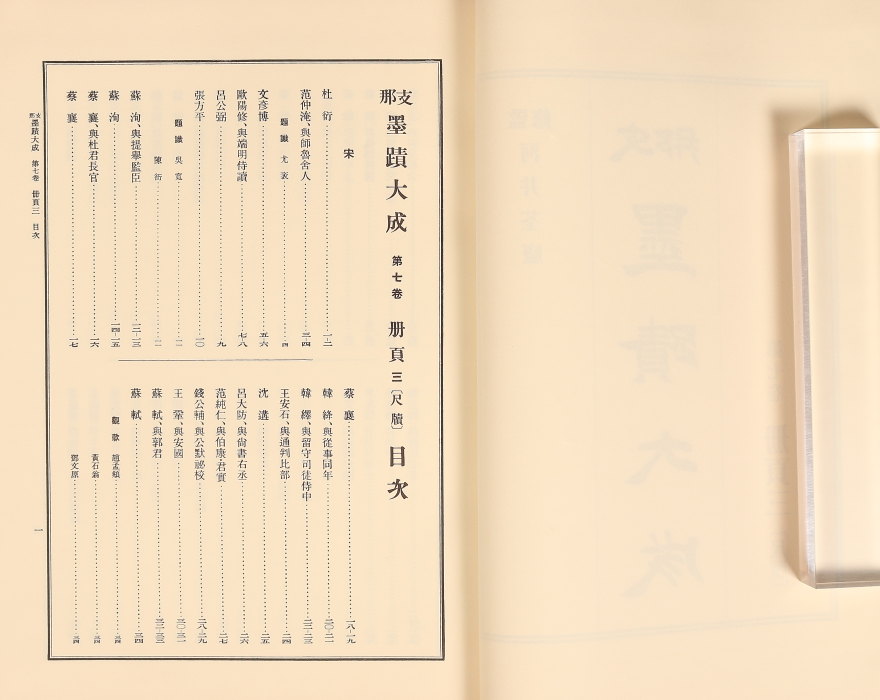 支那墨蹟大成 第七卷 册頁三〔尺牘〕目次
宋
杜 衍 一—二
范仲淹、與師魯舍人 三—四
題 識 尤 袤 四
文彦博 五—六
歐陽修、與端明侍讀 七—八
呂公弼 九
張方平 一〇
題 識 吳 寬 一一
陳 衎 一一
蘇 洵、與提擧監臣 一二—一三
蘇 洵 一四—一五
蔡 襄、與杜君長官 一六
蔡 襄 一七
蔡 襄 一八—一九
韓 絳、與從事同年 二〇—二一
韓 繹、與留守司徒侍中 二二—二三
王安石、與通判比部 二四
沈 遘 二五
呂大防、與尙書右丞 二六
范純仁、與伯康君實 二七
錢公輔、與公默祕校 二八—二九
王 鞏、與安國 三〇—三一
蘇 軾、與郭君 三二—三三
蘇 軾 三四
觀 款 趙孟頫 三四
黃石翁 三四
鄧文原 三四
支那墨蹟大成 第七卷 册頁三 目次
一